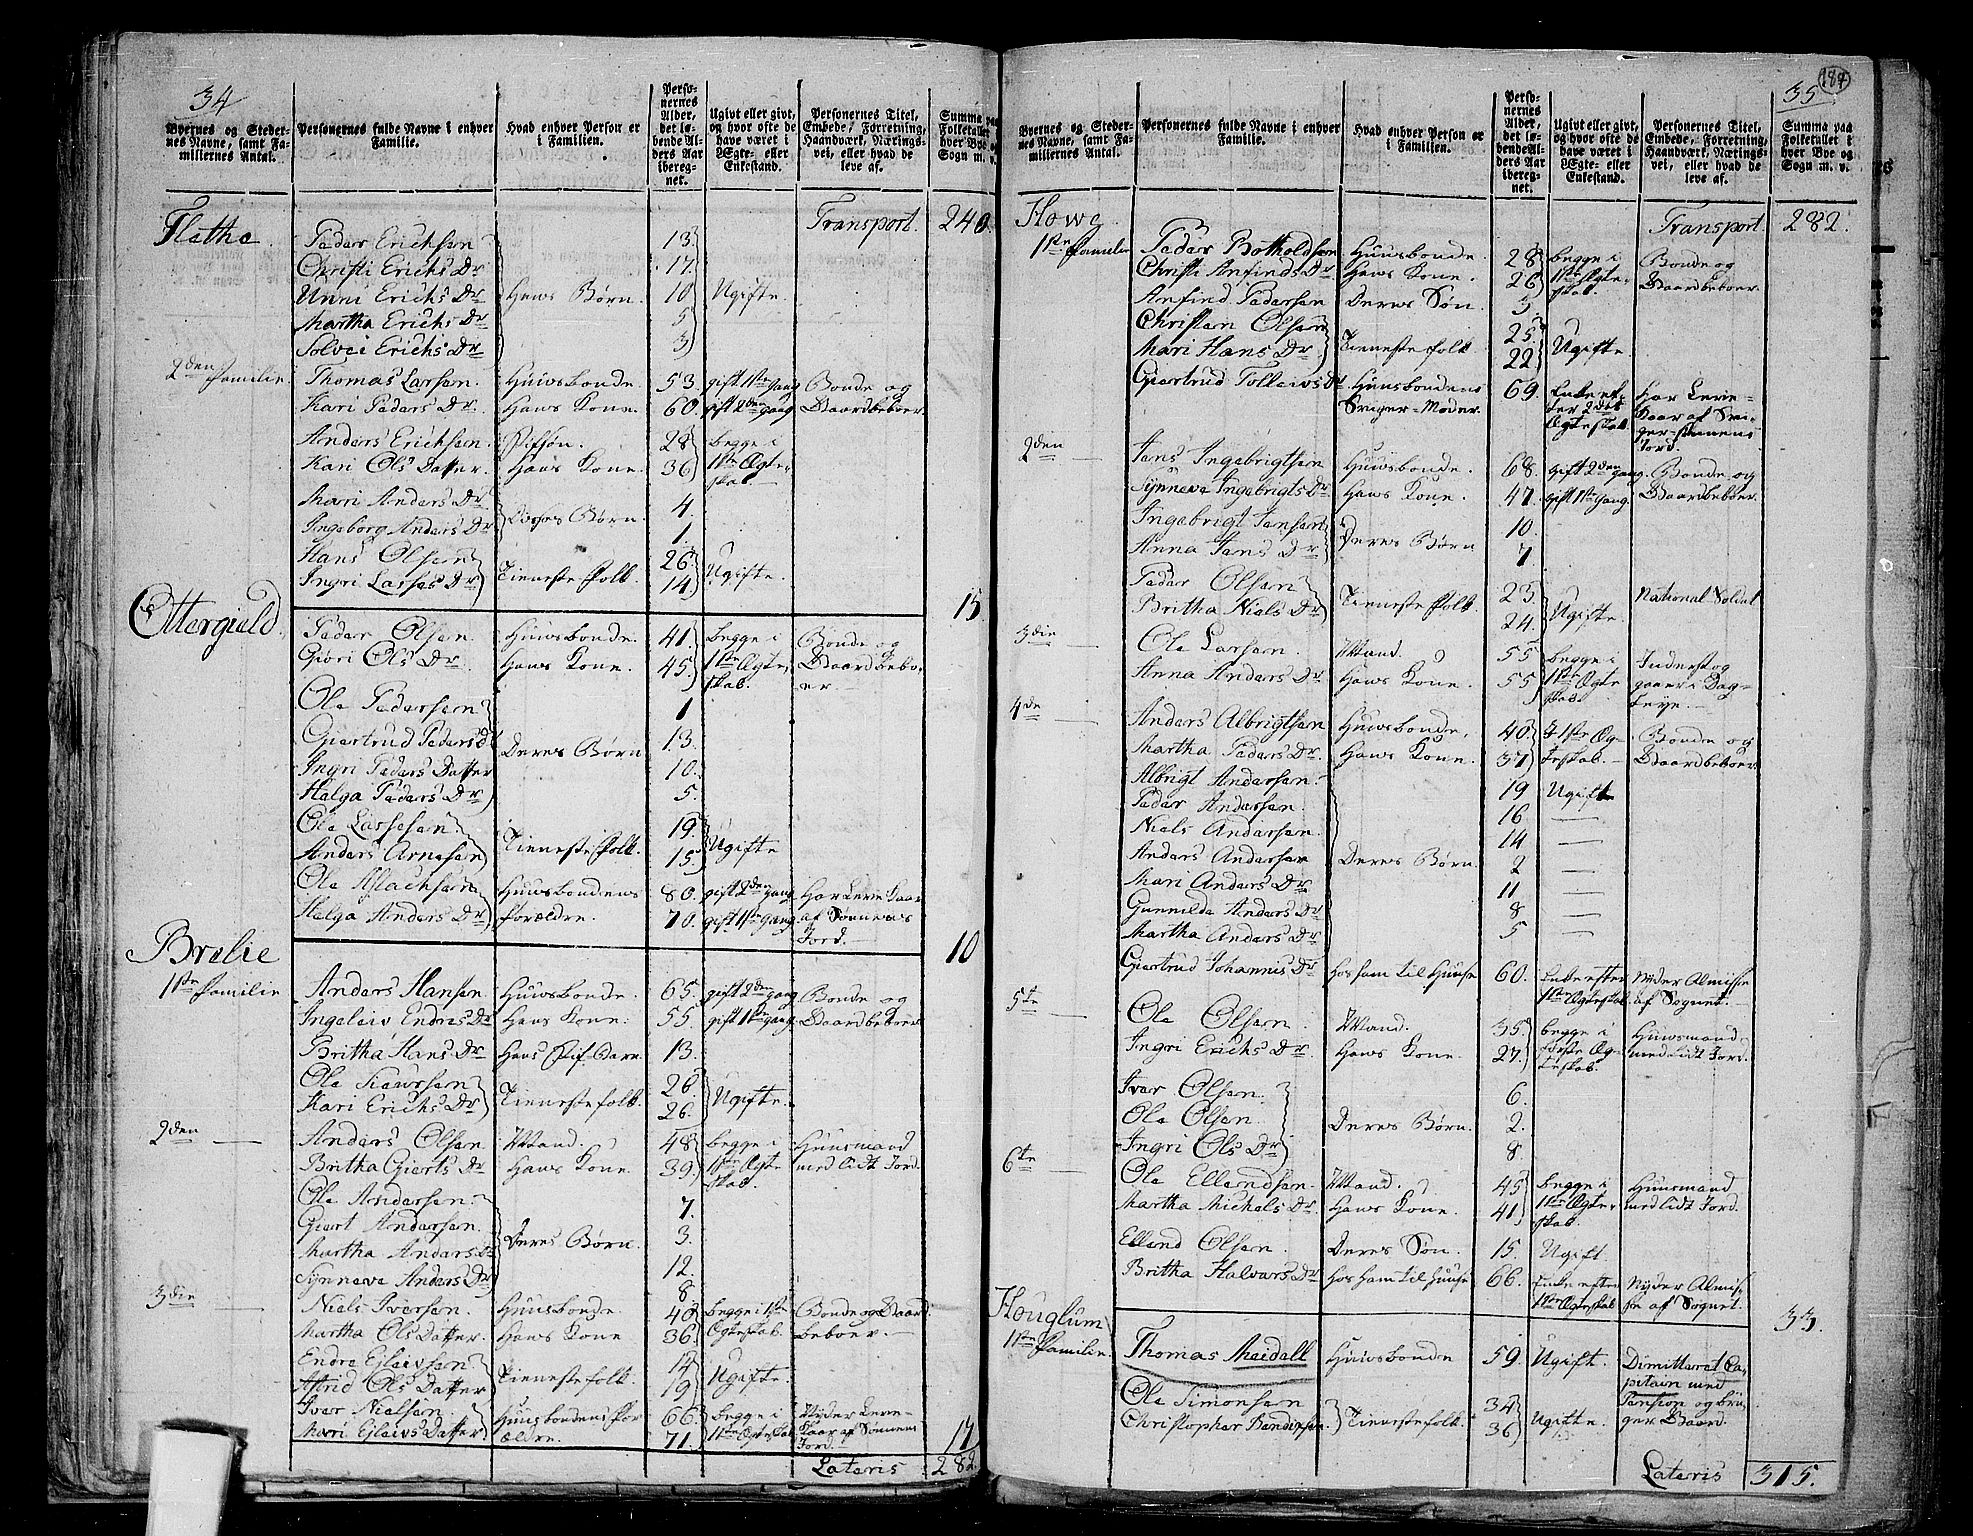 34
Byernes og Steder-nes Navne, samt Fa-milliernes Antal. | Personernes fulde Navne i enhver Familie. | Hvad enhver Person er i Familien. | Perso-nernes Alder, det lø-bende Al-ders Aar ibereg-net. | Ugivt eller givt, og hvor ofte de have været i Egte- eller Enkestand. | Personernes Titel, Embede, Forretning, Haandværk, Nærings-vei, eller hvad de leve af. | Summa paa Folketallet i hver Bye og Sogn m. v.
Transport. 240.
Flethe. Peder Erichsen 13.
Christi Erichs Dr 17.
Unni Erichs Dr Hans Børn. 10 Ugifte.
Martha Erichs Dr 5
Solvei Erichs Dr 3
2den Familie Thomas Larsen. Huusbonde 53. gift 1ste gang Bonde og
Kari Peders Dr. Hans Kone. 60. gift 2den gang Gaardbeboer.
Anders Erichsen. Stifsøn. 28 begge i
Kari Ols Datter. Hans Kone. 36 1ste Egte-
skab.
Mari Anders Dr 4.
Ingeborg Anders Dr Børn. 1.
Hans Olsen 26.
Ingri Lasses Dr Tieneste Folk. 14 Ugifte. 15.
Ottergield.
Peder Olsen Huusbonde. 41. begge i Bonde og
Giøri Ols Dr. Hans Kone. 45. 1ste Egte- Gaardbebo-
skab. er
Ole Pedersen 1
Giertrud Peders D 13.
Ingri Peders Datter Deres Børn 10.
Helga Peders Dr 5.
Ole Lassesen. 19.
Anders Arnesen Tieneste Folk. 15. Ugifte
Ole Aslachsen Huusbondens 80. gift 2den gang Har Leve Kaar
Helga Anders Dr Forældre. 70. gift 1ste gang af Sønnens
Jord. 10
Brølie
1ste Familie Anders Hansen Huusbonde. 65. gift 2den gang Bonde og
Ingeleiv Endres Dr Hans Kone. 55. gift 1ste gang. Gaardbeboer.
Britha Hans Dr Hans Stif-Barn. 13.
Ole Siursen 26.
Kari Erichs Dr Tienestefolk. 26. Ugifte.
2den Anders Olsen Mand. 48 begge i Huusmand
Britha Gierts Dr Hans Kone. 39. 1ste Egte med lidt Jord.
skab.
Ole Andersen. 7.
Giert Andersen. 3.
Martha Anders Dr Deres Børn. 12.
Synneve Anders Dr 8
3die Niels Iversen. Huusbonde. 40 begge i 1ste Bonde og Gaard
Martha Ols Datter. Hans Kone 36. Egteskab. beboer.
Endre Ejleivsen. 14
Astrid Ols Datter Tienestefolk. 19 Ugifte.
Iver Nielsen. Huusbondens For 66. begge i Nyder Leve-
Mari Ejleivs Datter ældre. 71. 1ste Egteskab. Kaar af Sønnens
Jord. 17
Lateris 282.
184
35
Byernes og Steder-nes Navne, samt Fa-milliernes Antal. | Personernes fulde Navne i enhver Familie. | Hvad enhver Person er i Familien. | Perso-nernes Alder, det lø-bende Al-ders Aar ibereg-net. | Ugivt eller givt, og hvor ofte de have været i Egte- eller Enkestand. | Personernes Titel, Embede, Forretning, Haandværk, Nærings-vei, eller hvad de leve af. | Summa paa Folketallet i hver Bye og Sogn m. v.
Howe Transport. 282.
1ste Familie Peder Botholdsen Huusbonde. 28 begge i Bonde og
Christi Anfinds Dr Hans Kone. 26 1ste Egte- Gaardbeboer.
skab.
Anfind Pedersen Deres Søn 3.
Christen Olsen 25
Mari Hans Dr Tienestefolk 22 Ugifte
Giertrud Tolleivs Dr Huusbondens 69. Enke ef- Har Leve-
Sviger-Moder. ter 2det Kaar af Svi-
Egteskab. ger-Sønnens
Jord.
2den Jens Ingebrigtsen Huusbonde. 68. gift 2den gang. Bonde og
Synneve Ingebrigts Dr Hans Kone. 47. gift 1ste gang. Gaardbeboer.
Ingebrigt Jensen 10.
Anna Jens Dr Deres Børn 7
Peder Olsen 23. National Soldat
Britha Niels Dr Tieneste Folk 24. Ugifte.
3die Ole Larsen. Mand. 55 begge i Inderst og
Anna Anders Dr Hans Kone. 55 1ste Egte gaaer i Dag-
skab. Leye.
4de Anders Albrigtsen Huusbonde. 40. I 1ste Eg- Bonde og
Martha Peders Dr. Hans Kone. 37 teskab. Gaardbeboer.
Albrigt Andersen. 19 Ugift
Peder Andersen. 16
Niels Andersen. 14
Anders Andersen Deres Børn 2
Mari Anders Dr 11
Gunnilda Anders Dr 8
Martha Anders Dr 5
Giertrud Johannis Dr Hos ham til Huuse 60. Enke efter Nyder Almisse
1ste Egteskab af Sognet.
5te Ole Olsen. Mand. 35. begge i Huusmand
Ingri Erichs Dr. Hans Kone. 27. første Eg- med lidt Jord.
teskab.
Iver Olsen. 6.
Ole Olsen. Deres Børn. 2.
Ingri Ols Dr 8
6te Ole Ellendsen. Mand. 45 begge i Huusmand
Martha Michels Dr. Hans Kone. 41. 1ste Egte- med lidt Jord.
skab.
Ellend Olsen. Deres Søn. 15. Ugift
Britha Halvors Dr Hos ham til Huuse 66. Enke efter Nyder Almis-
1ste Egteskab se af Sognet. 33.
Houglum
1ste Familie. Thomas Meidell Huusbonde 59. Ugift. Dimitteret Ca-
pitain med
Ole Simonsen 34 Pension og bru-
Christopher Bendixsen. Tienestefolk 36 Ugifte. ger Gaard.
Lateris 315.